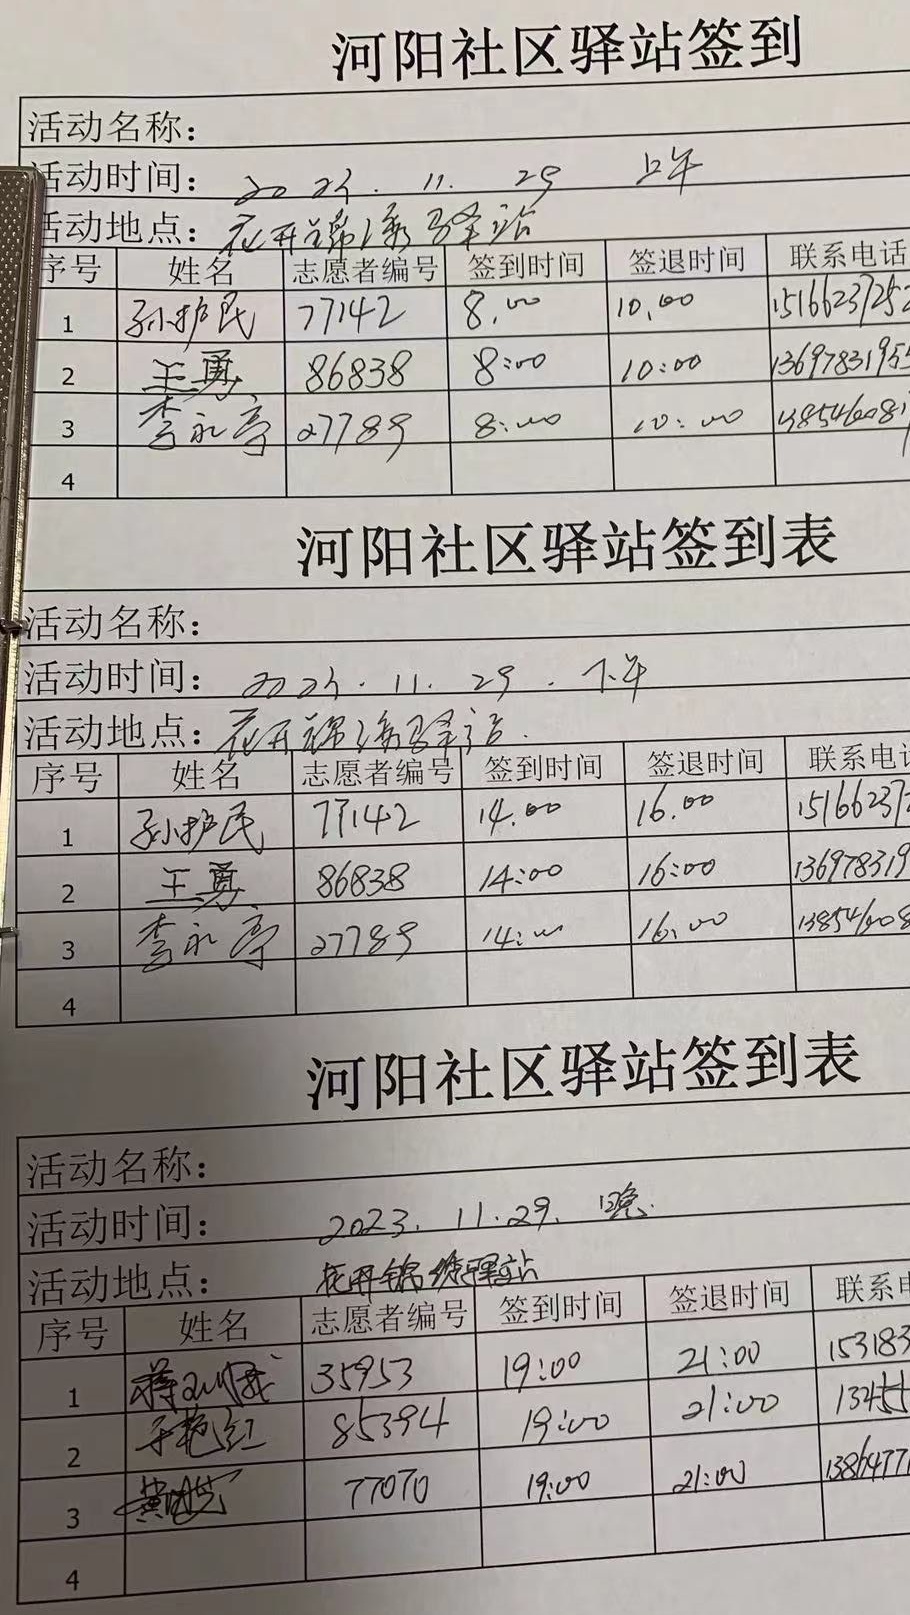 河阳社区驿站签到
活动名称：
活动时间： 2023. 11. 29 上午
活动地点：花开锦绣驿站
序号 姓名 志愿者编号 签到时间 签退时间 联系电话
1 孙护民 77142 8.00 10.00 1516623725
2 王勇 86838 8:00 10:00 1369783195
3 李永亭 27789 8:00 10:00 138546008
4
河阳社区驿站签到表
活动名称：
活动时间： 2023. 11. 29. 下午
活动地点：花开锦绣驿站.
序号 姓名 志愿者编号 签到时间 签退时间 联系电话
1 孙护民 77142 14.00 16.00 15166237
2 王勇 86838 14:00 16:00 136978319
3 李永亭 27789 14:00 16.00 138546008
4
河阳社区驿站签到表
活动名称：
活动时间： 2023. 11.29. 晚.
活动地点： 花开锦绣驿站
序号 姓名 志愿者编号 签到时间 签退时间 联系电
1 35953 19:00 21:00 153183
2 于艳红 85394 19:00 21:00 13455
3 77070 19:00 21:00 1386477
4